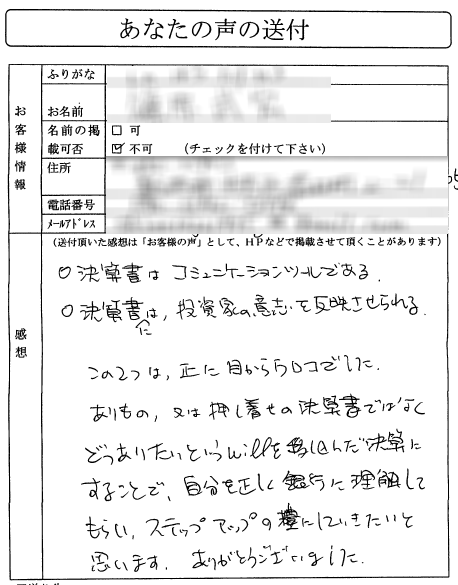 あなたの声の送付
ふりがな
お名前
お客様情報
名前の掲載可否
□ 可
☑ 不可 (チェックを付けて下さい)
住所
電話番号
メールアドレス
(送付頂いた感想は「お客様の声」として、HPなどで掲載させて頂くことがあります)
感想
○決算書はコミュニケーションツールである.
○決算書には,投資家の意志を反映させられる.
この2つは,正に目からウロコでした.
ありもの,又は押し着せの決算書ではなく
どうありたいというwillを 込んだ決算に
することで,自分を正しく銀行に理解して
もらい,ステップアップの糧にしていきたいと
思います.ありがとうございました.